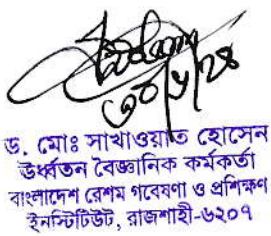 ৩০/৮/২৪
ড. মোঃ সাখাওয়াত হোসেন
ঊর্ধ্বতন বৈজ্ঞানিক কর্মকর্তা
বাংলাদেশ রেশম গবেষণা ও প্রশিক্ষণ
ইনস্টিটিউট, রাজশাহী-৬২০৭